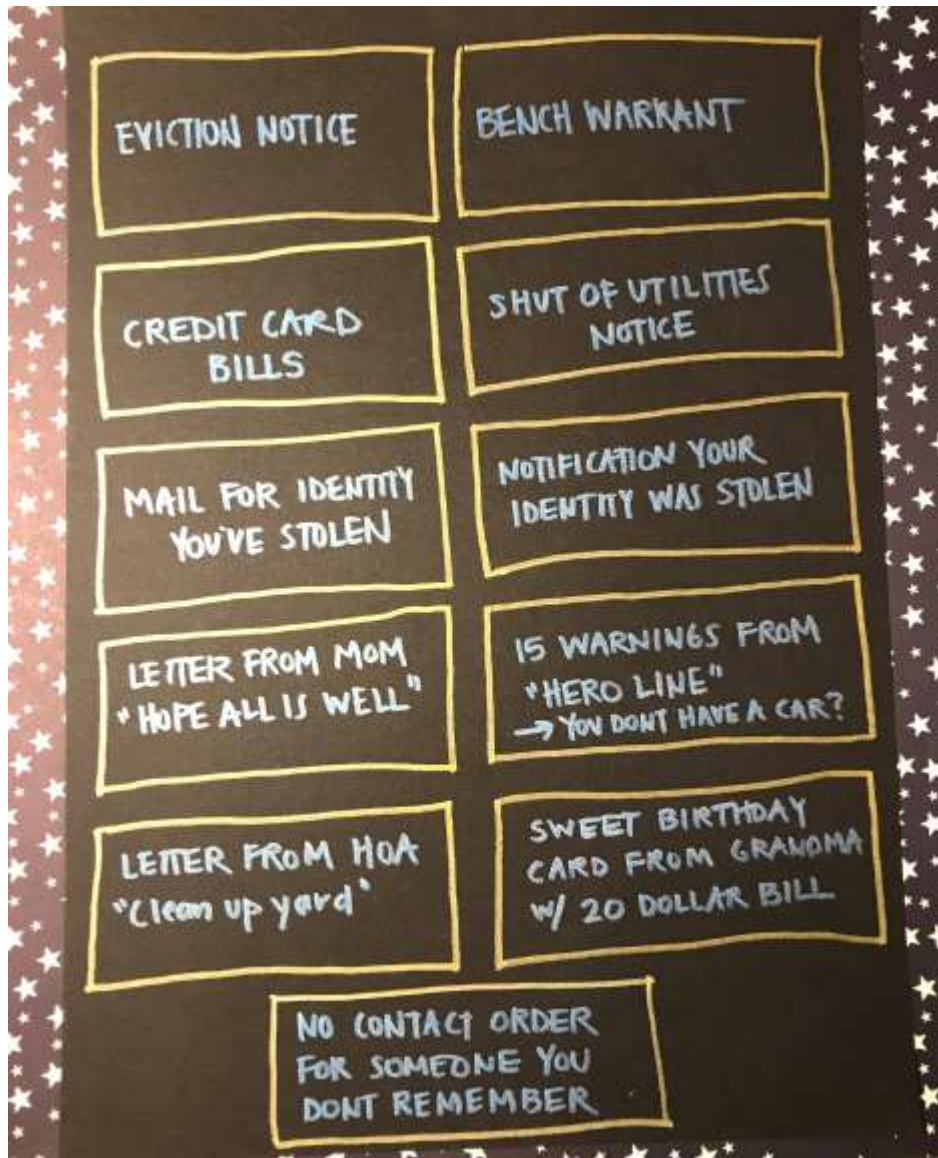 EVICTION NOTICE
BENCH WARRANT
CREDIT CARD
BILLS
SHUT OF UTILITIES
NOTICE
MAIL FOR IDENTITY
YOU'VE STOLEN
NOTIFICATION YOUR
IDENTITY WAS STOLEN
LETTER FROM MOM
"HOPE ALL IS WELL"
15 WARNINGS FROM
"HERO LINE"
→ YOU DONT HAVE A CAR?
LETTER FROM HOA
"Clean up yard"
SWEET BIRTHDAY
CARD FROM GRANDMA
W/ 20 DOLLAR BILL
NO CONTACT ORDER
FOR SOMEONE YOU
DONT REMEMBER